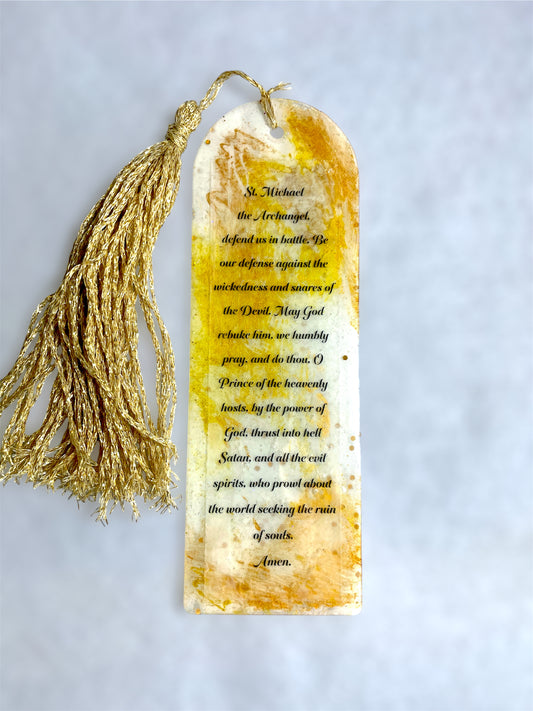 St. Michael
the Archangel,
defend us in battle. Be
our defense against the
wickedness and snares of
the Devil. May God
rebuke him, we humbly
pray, and do thou, O
Prince of the heavenly
hosts, by the power of
God, thrust into hell
Satan, and all the evil
spirits, who prowl about
the world seeking the ruin
of souls.
Amen.